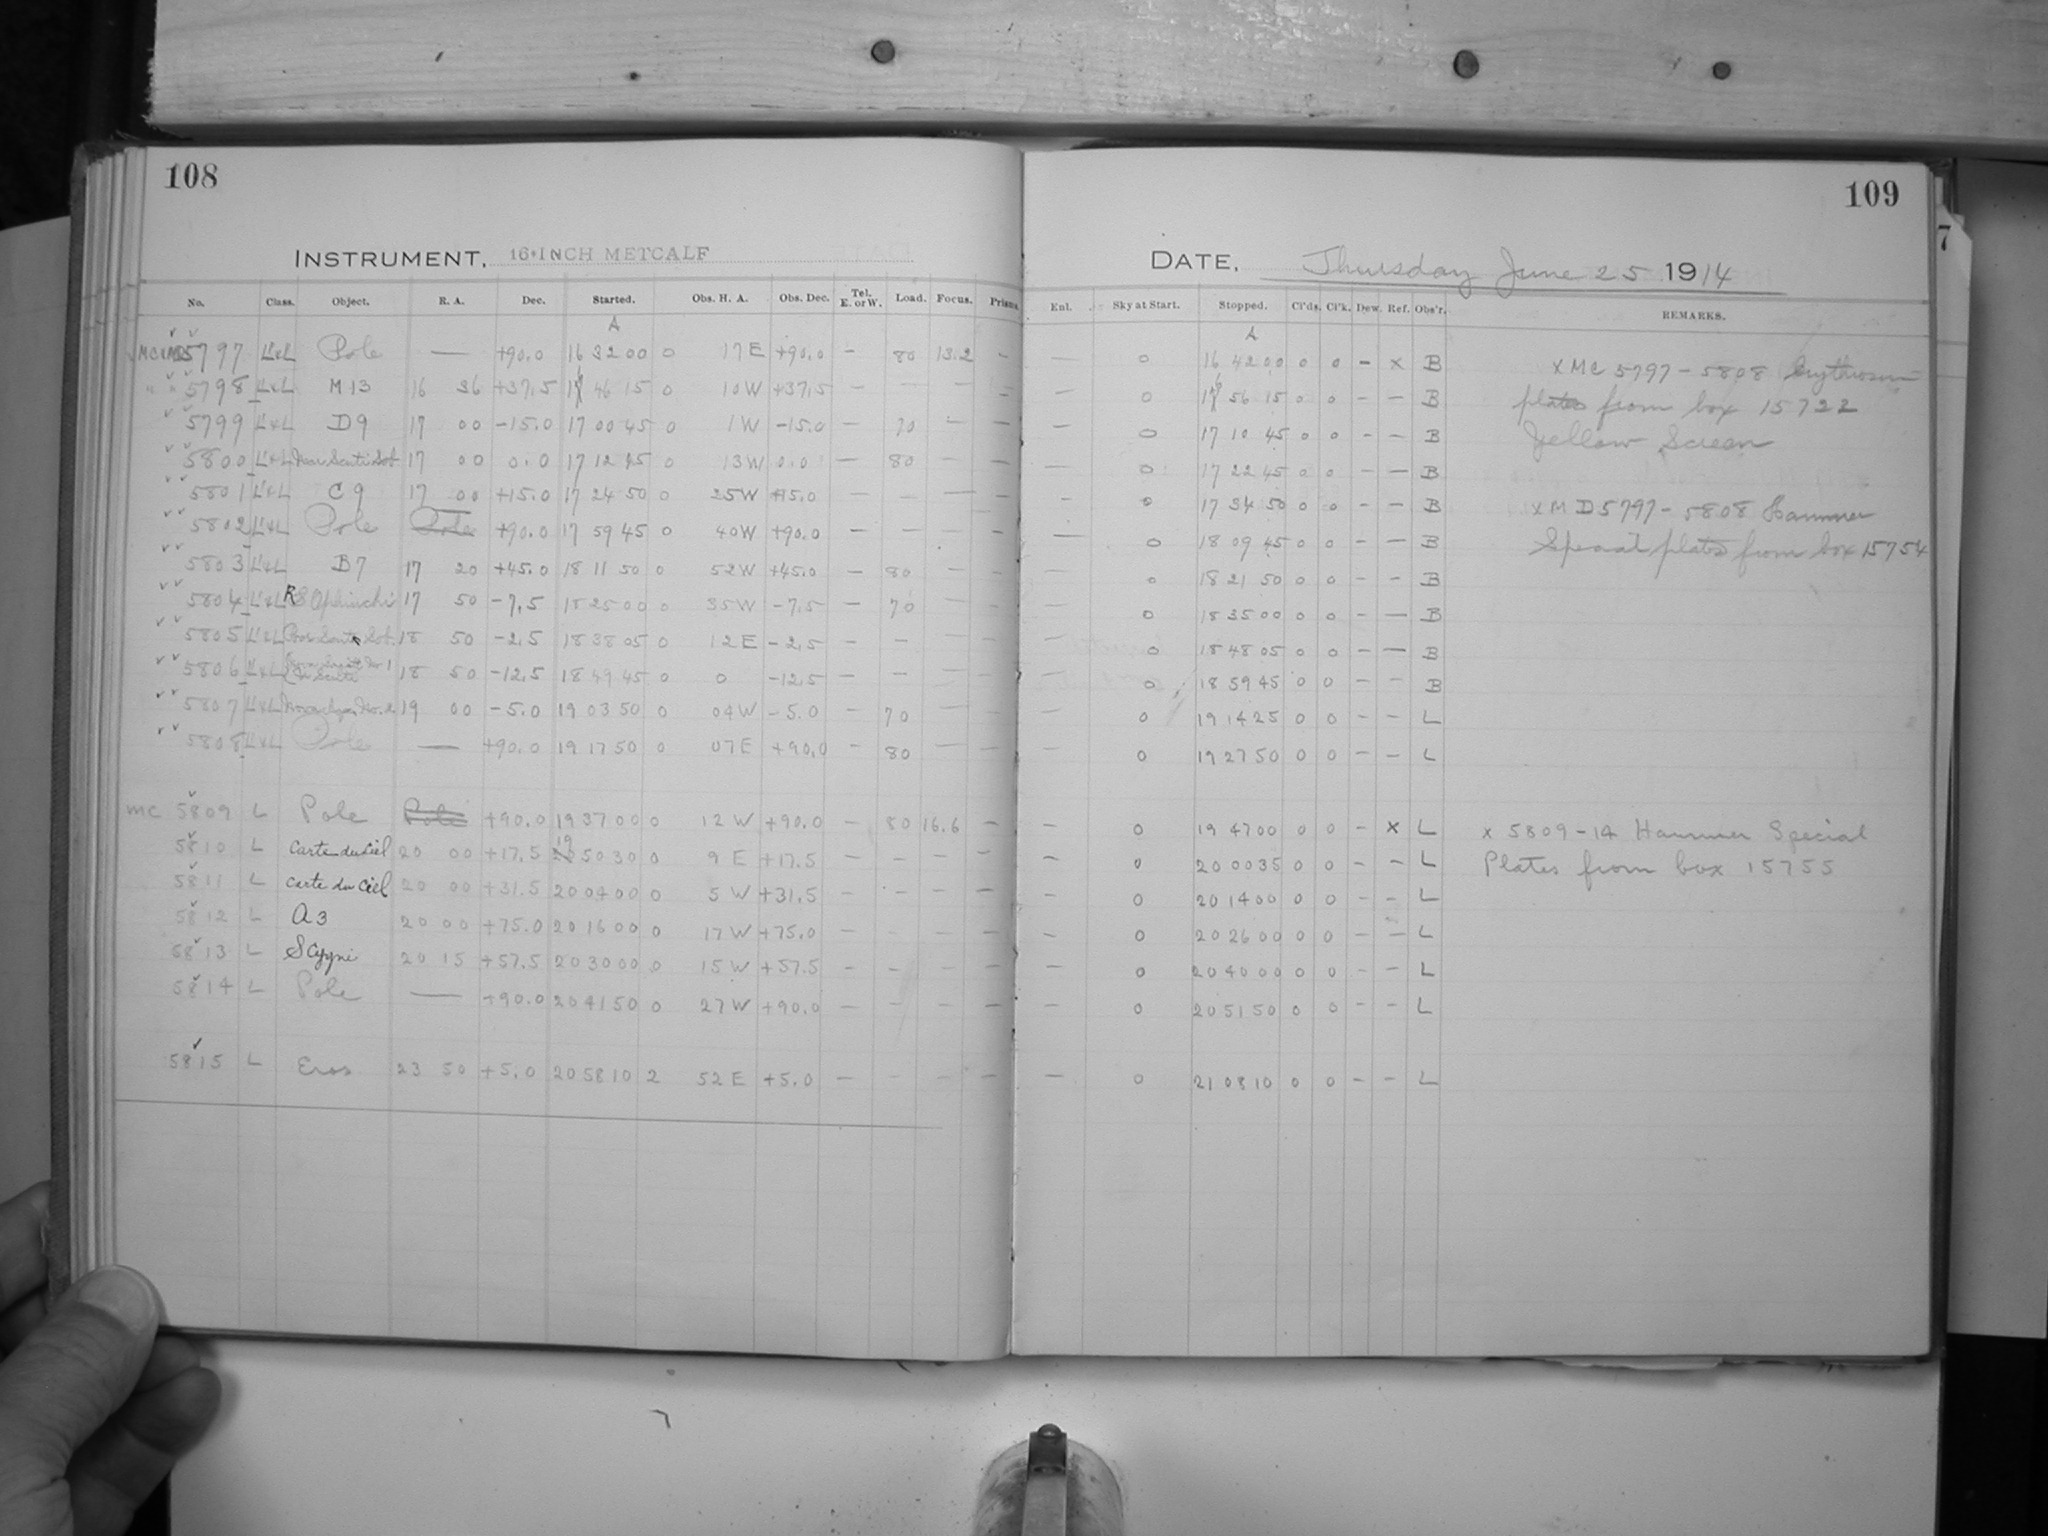 108
INSTRUMENT, 16-INCH METCALF
No. Class. Object. R. A. Dec. Started. Obs. H. A. Obs. Dec. Tel. E. or W. Load. Focus. Prism.
A
5797 L&L Pole — +90.0 16 32 00 0 17 E +90.0 — 80 13.2 —
" " 5798 L&L M13 16 36 +37.5 16 46 15 0 10W +37.5 — — — —
5799 L&L D9 17 00 -15.0 17 00 45 0 1W -15.0 — 70 — —
5800 L&L 17 00 0.0 17 12 45 0 13W 0.0 — 80 — —
5801 L&L C9 17 00 +15.0 17 24 50 0 25W +15.0 — — — —
5802 L&L Pole Pole +90.0 17 59 45 0 40W +90.0 — — — —
5803 L&L B7 17 20 +45.0 18 11 50 0 52W +45.0 — 80 — —
5804 L&L RS Ophiuchi 17 50 -7.5 18 25 00 0 35W -7.5 — 70 — —
5805 L&L 18 50 -2.5 18 38 05 0 12 E -2.5 — — — —
5806 L&L 18 50 -12.5 18 49 45 0 0 -12.5 — — — —
5807 L&L 19 00 -5.0 19 03 50 0 04W -5.0 — 70 — —
5808 L&L Pole — +90.0 19 17 50 0 07E +90.0 — 80 — —
MC 5809 L Pole Pole +90.0 19 37 00 0 12 W +90.0 — 80 16.6 —
5810 L Carte du Ciel 20 00 +17.5 19 50 30 0 9 E +17.5 — — — —
5811 L Carte du Ciel 20 00 +31.5 20 04 00 0 5 W +31.5 — — — —
5812 L A3 20 00 +75.0 20 16 00 0 17 W +75.0 — — — —
5813 L S Cygni 20 15 +57.5 20 30 00 0 15 W +57.5 — — — —
5814 L Pole — +90.0 20 41 50 0 27 W +90.0 — — — —
5815 L Eros 23 50 +5.0 20 58 10 2 52 E +5.0 — — — —
109
7
DATE, Thursday June 25 1914
Enl. Sky at Start. Stopped. Cl'ds. Cl'k. Dew. Ref. Obs'r. REMARKS.
A
— 0 16 42 00 0 0 — x B x MC 5797-5808 Erythrosin
— 0 16 56 15 0 0 — — B plates from box 15722
— 0 17 10 45 0 0 — — B Yellow Screen
— 0 17 22 45 0 0 — — B
— 0 17 34 50 0 0 — — B x MD 5797-5808 Hammer
— 0 18 09 45 0 0 — — B Special plates from box 15754
— 0 18 21 50 0 0 — — B
— 0 18 35 00 0 0 — — B
— 0 18 48 05 0 0 — — B
— 0 18 59 45 0 0 — — B
— 0 19 14 25 0 0 — — L
— 0 19 27 50 0 0 — — L
— 0 19 47 00 0 0 — x L x 5809-14 Hammer Special
— 0 20 00 35 0 0 — — L Plates from box 15755
— 0 20 14 00 0 0 — — L
— 0 20 26 00 0 0 — — L
— 0 20 40 00 0 0 — — L
— 0 20 51 50 0 0 — — L
— 0 21 08 10 0 0 — — L